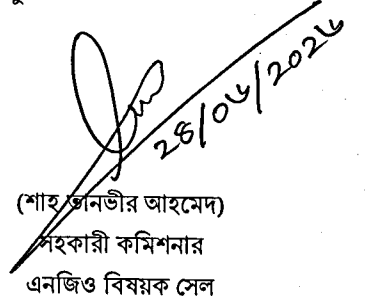 ২৪/০৬/২০২৬
(শাহ তানভীর আহমেদ)
সহকারী কমিশনার
এনজিও বিষয়ক সেল